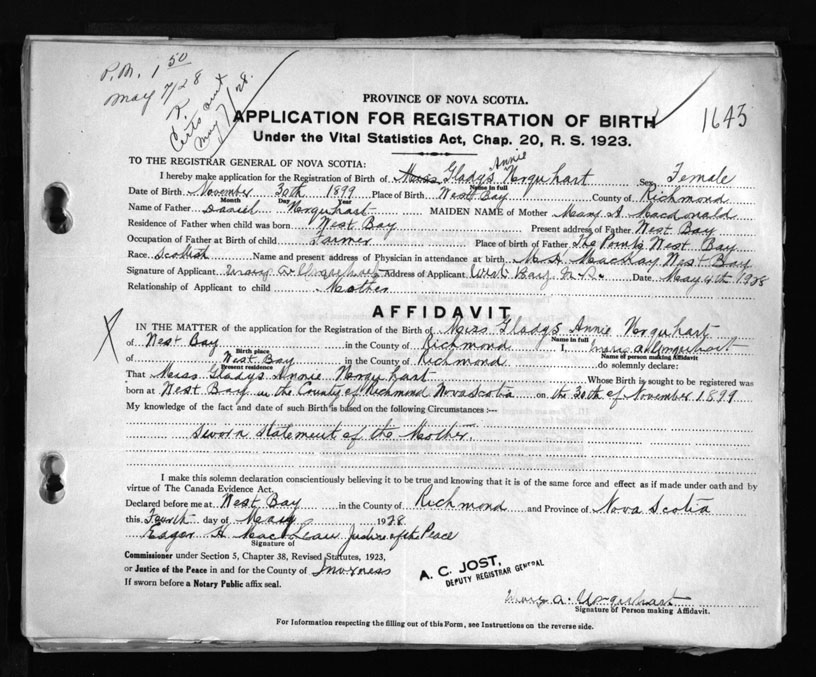 P.M. 1 50
May 7/28
R.
Certs out
May 7/28.
1643
PROVINCE OF NOVA SCOTIA.
APPLICATION FOR REGISTRATION OF BIRTH
Under the Vital Statistics Act, Chap. 20, R. S. 1923.
TO THE REGISTRAR GENERAL OF NOVA SCOTIA:
I hereby make application for the Registration of Birth of Miss Gladys Annie Verquhart Sex Female
Name in full
Date of Birth November 30th 1899 Place of Birth West Bay County of Richmond
Month Day Year
Name of Father Daniel Verquhart MAIDEN NAME of Mother Mary A Macdonald
Residence of Father when child was born West Bay Present address of Father West Bay
Occupation of Father at Birth of child Farmer Place of birth of Father The Points West Bay
Race Scottish Name and present address of Physician in attendance at birth M. A. MacKay West Bay
Signature of Applicant Mary A Urquhart Address of Applicant West Bay N.S. Date May 4th 1928
Relationship of Applicant to child Mother
AFFIDAVIT
IN THE MATTER of the application for the Registration of the Birth of Miss Gladys Annie Verquhart
Name in full
of West Bay in the County of Richmond I, Mary A. Urquhart
Birth place Name of person making Affidavit
of West Bay in the County of Richmond do solemnly declare:
Present residence
That Miss Gladys Annie Verquhart Whose Birth is sought to be registered was
born at West Bay in the County of Richmond Nova Scotia on the 30th of November 1899
My knowledge of the fact and date of such Birth is based on the following Circumstances :—
Sworn statement of the Mother.
I make this solemn declaration conscientiously believing it to be true and knowing that it is of the same force and effect as if made under oath and by
virtue of The Canada Evidence Act.
Declared before me at West Bay in the County of Richmond and Province of Nova Scotia
this Fourth day of May 1928
Edgar H. MacLean Justice of the Peace
Signature of
Commissioner under Section 5, Chapter 38, Revised Statutes, 1923,
or Justice of the Peace in and for the County of Inverness
If sworn before a Notary Public affix seal.
A. C. JOST,
DEPUTY REGISTRAR GENERAL
Mary A. Urquhart
Signature of Person making Affidavit.
For Information respecting the filling out of this Form, see Instructions on the reverse side.